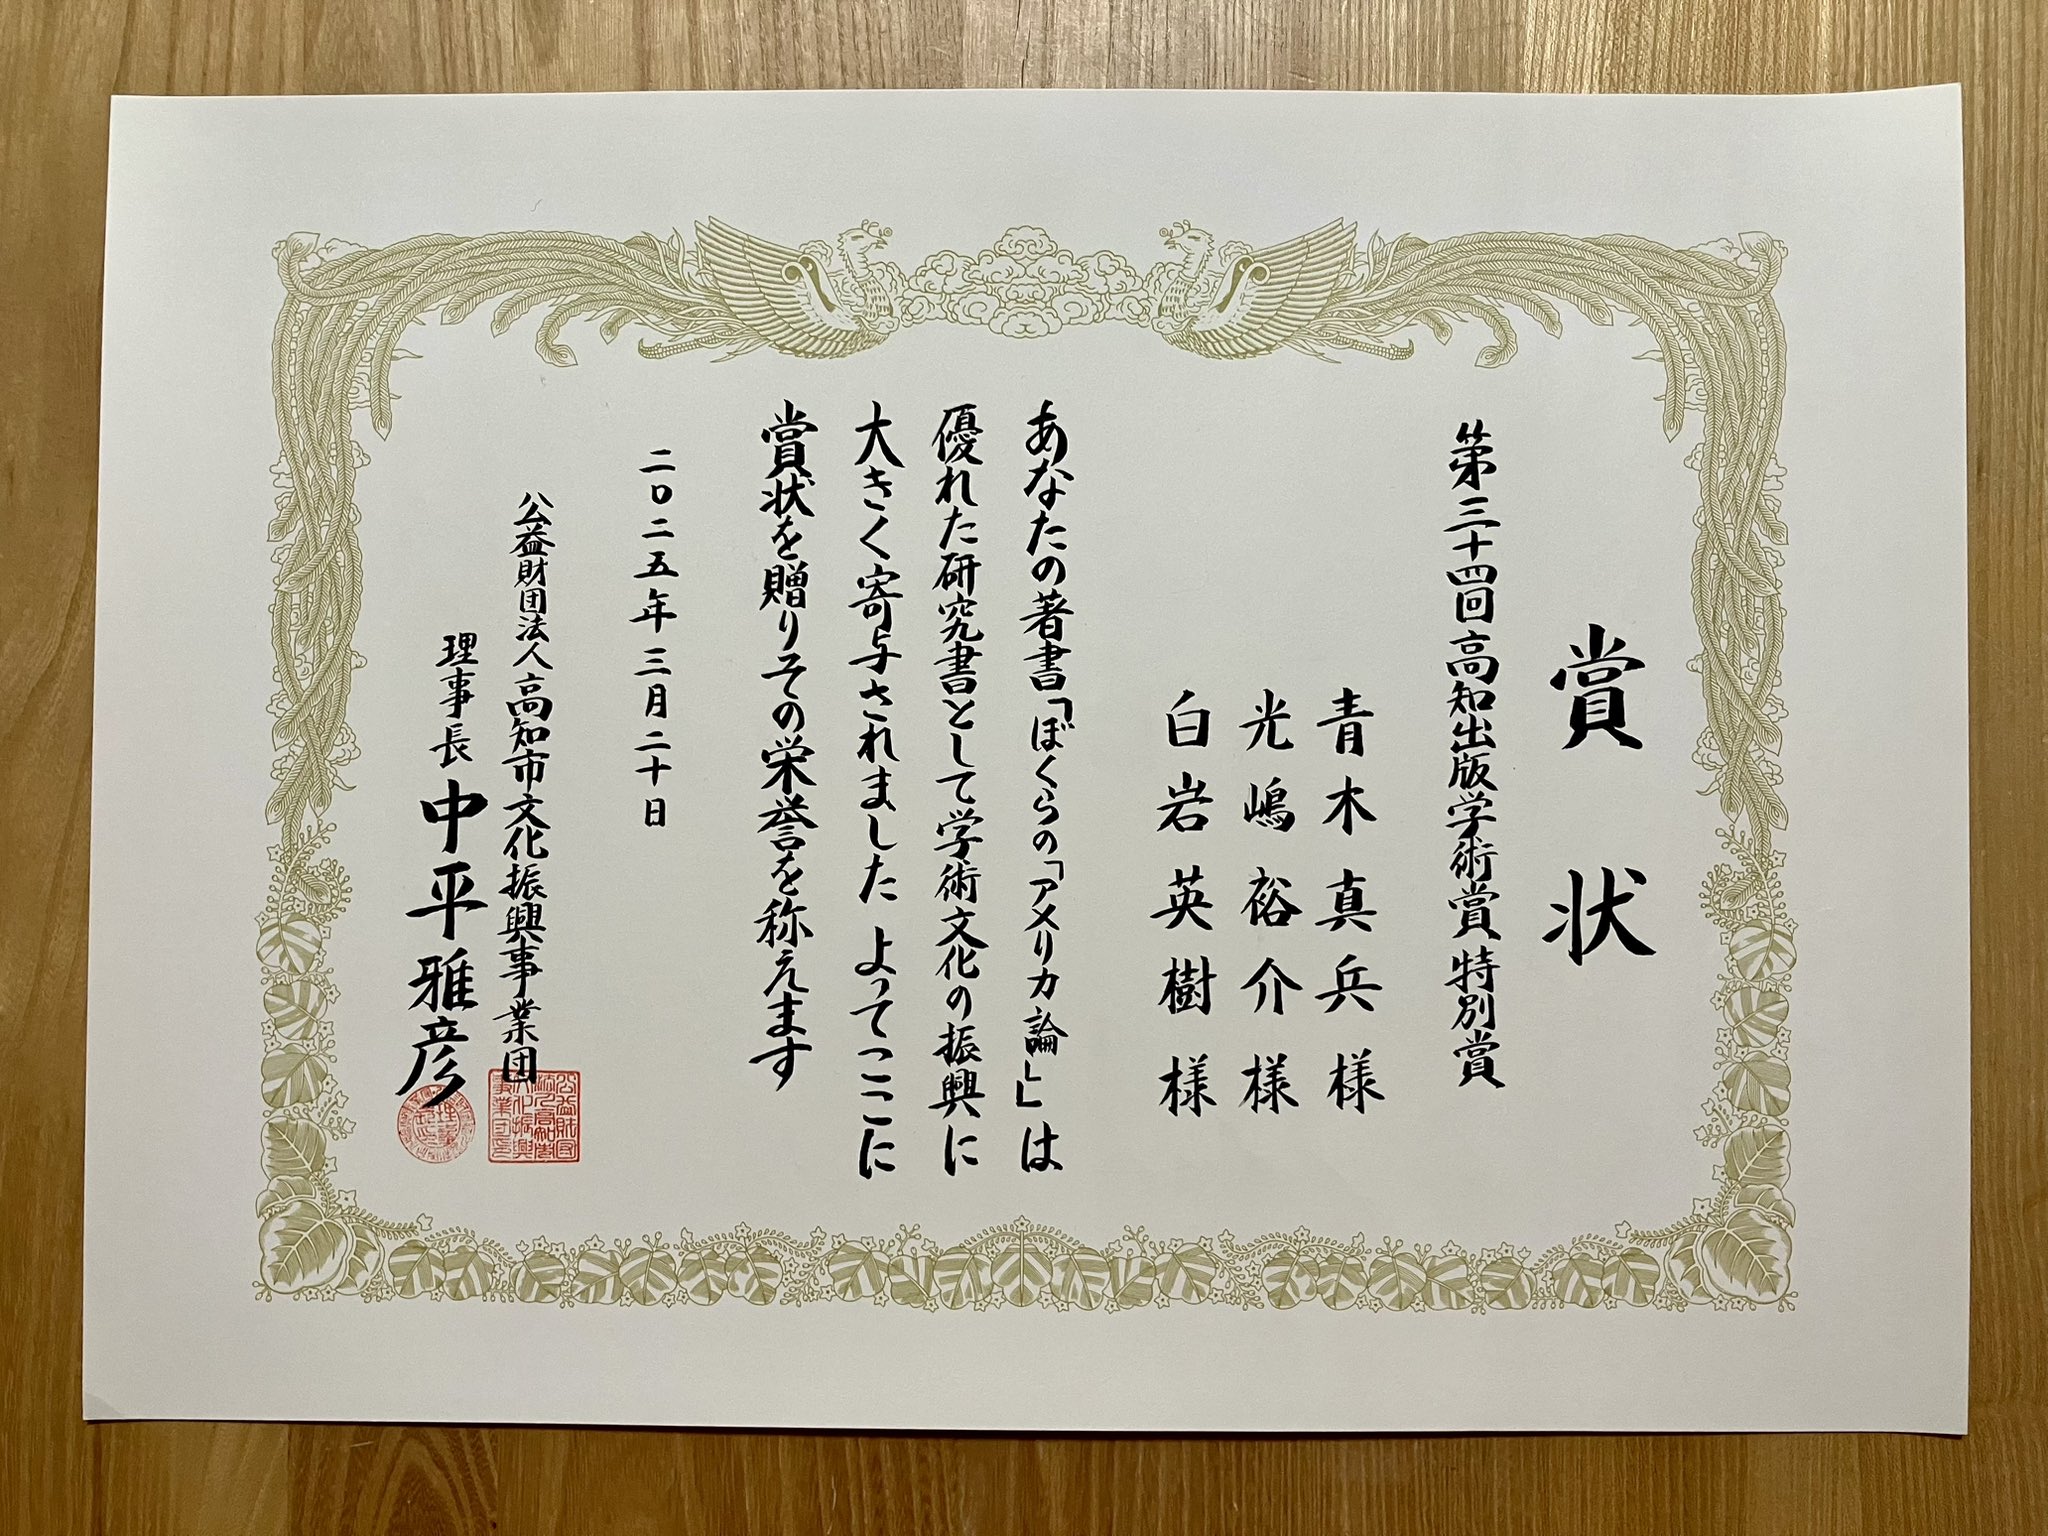 賞状
第三十四回高知出版学術賞特別賞
青木真兵様
光嶋裕介様
白岩英樹様
あなたの著書「ぼくらの「アメリカ論」」は
優れた研究書として学術文化の振興に
大きく寄与されました よってここに
賞状を贈りその栄誉を称えます
二〇二五年三月二十日
公益財団法人高知市文化振興事業団
理事長 中平雅彦